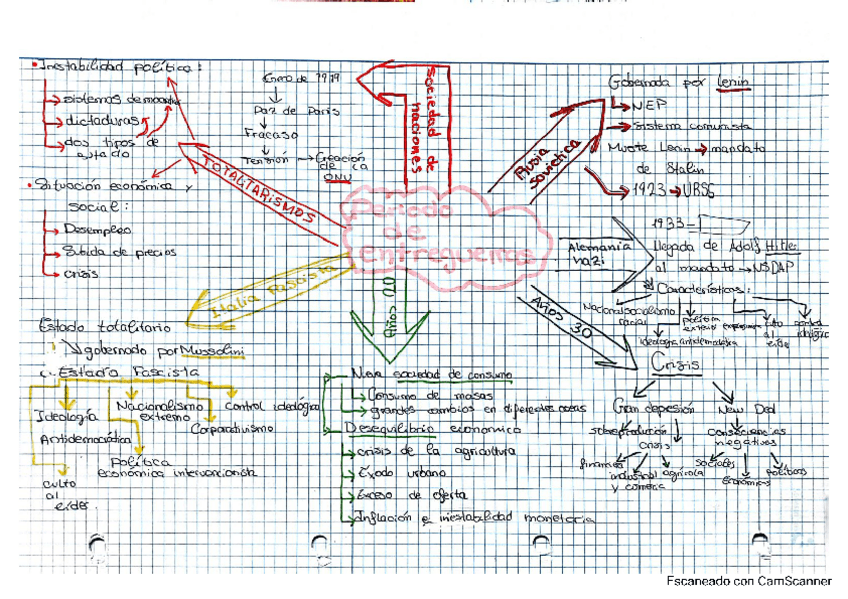 Periodo
de
entreguerras
TOTALTARISMOS
• Inestabilidad política:
sistemas de
dictaduras
dos tipos de
estado
• Situación económica y
social:
Desempleo
Subida de precios
crisis
sociedad de
naciones
Enero de 1919
Paz de París
Fracaso
Tensión → Creación
de la
ONU
Rusia
soviética
Gobernada por Lenin
NEP
sistema comunista
Muerte Lenin → mandato
de Stalin
1923 → URSS
Alemania
nazi
1933 =
llegada de Adolf Hitler
al mandato → NSDAP
Características:
Nacionalsocialismo
racial
política
exterior
culto
al
líder
control
ideológico
ideología antidemocrática
Italia Fascista
Estado totalitario
gobernado por Mussolini
Estado Fascista
Ideología
Antidemocrática
Nacionalismo
extremo
Control ideológico
Corporativismo
Política
económica intervencionista
culto
al
líder
Años 20
Nueva sociedad de consumo
Consumo de masas
grandes cambios en diferentes áreas
Desequilibrio económico
crisis de la agricultura
Éxodo urbano
Exceso de oferta
Inflación e inestabilidad monetaria
Años 30
Crisis
Gran depresión
sobreproducción
crisis
financiera
industrial
y comercio
agrícola
New Deal
consecuencias
negativas
sociales
económicas
políticas
Escaneado con CamScanner